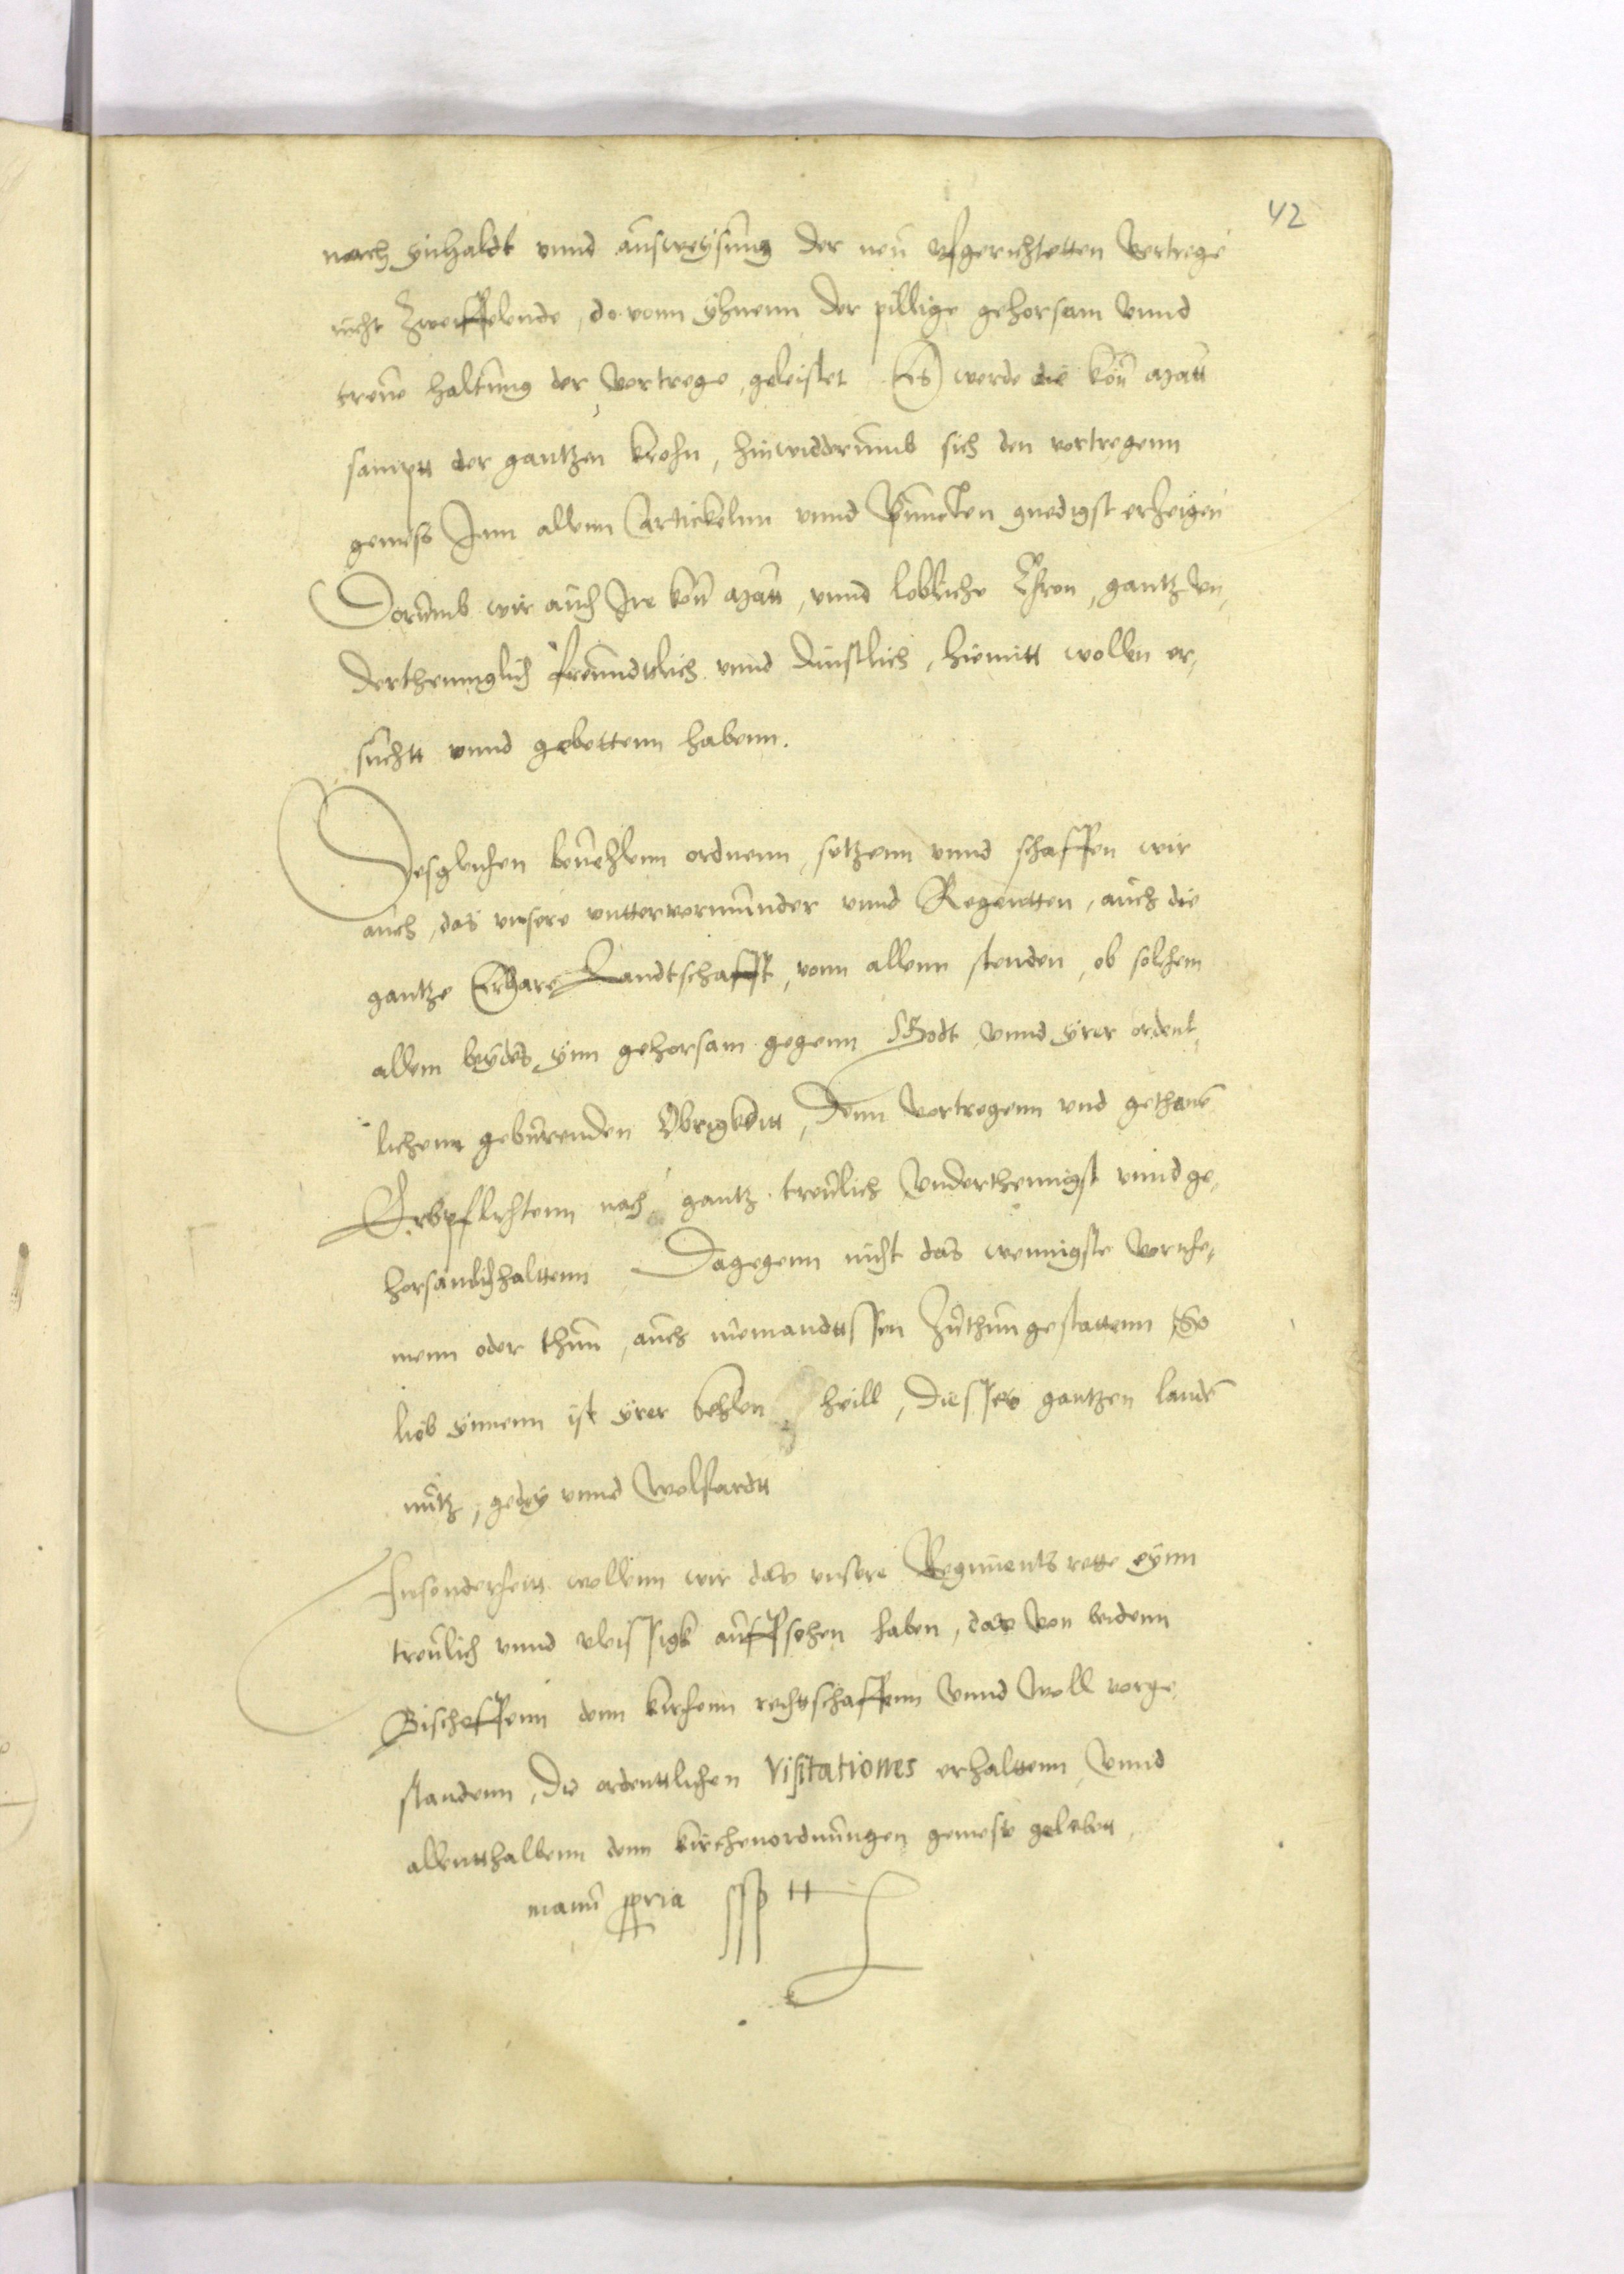 42
nach ynhaldt vnnd ausweysung der neu vfgerichtetten vertrege
nicht zweiffelende, do vonn yhnenn der pillige gehorsam vnnd
treue haltung der vortrege, geleistet Es werde die kön Matt
samptt der gantzen krohn, hinwidderumb sich den vortregenn
gemess Inn allenn Artickelnn vnnd Puncten gnedigst erzeigen
Dorumb wir auch Ire kön Matt, vnnd lobliche Chron, gantz vn,
derthenniglich freundtlich vnnd dinstlich, hiemitt wollen er,
suchtt vnnd gebettenn habenn.
Desgleichen beuehlenn ordnenn, setzenn vnnd schaffen wir
auch, das vnsere vnttervormunder vnnd Regentten, auch die
gantze Erbare Landtschafft, vonn allenn stenden, ob solchem
allem beydes ynn gehorsam gegenn Godt vnnd yrer ordent,
lichenn geburenden Obrigkeitt, Denn vortregenn vnd gethane
Erbpflichtenn nach gantz treulich vnderthennigst vnnd ge,
horsamlich halttenn Dagegenn nicht das wennigste vorneh,
menn oder thun, auch niemandtssen zuthun gestattenn So
lieb ynnenn ist yrer sehlen heill, diesses gantzen lands
nutz, gedey vnnd Wolfardtt
Insonderheitt wollenn wir das vnsere Regiments rette eynn
treulich vnnd vleissigk auffsehen haben, das von beidenn
Bischoffenn denn kirchenn rechttschaffenn vnnd woll vorge,
standenn, die ordenttlichen Visitationes erhalttenn, vnnd
allentthalbenn denn kirchenordnungen gemess gelebtt
manu ppria sspt